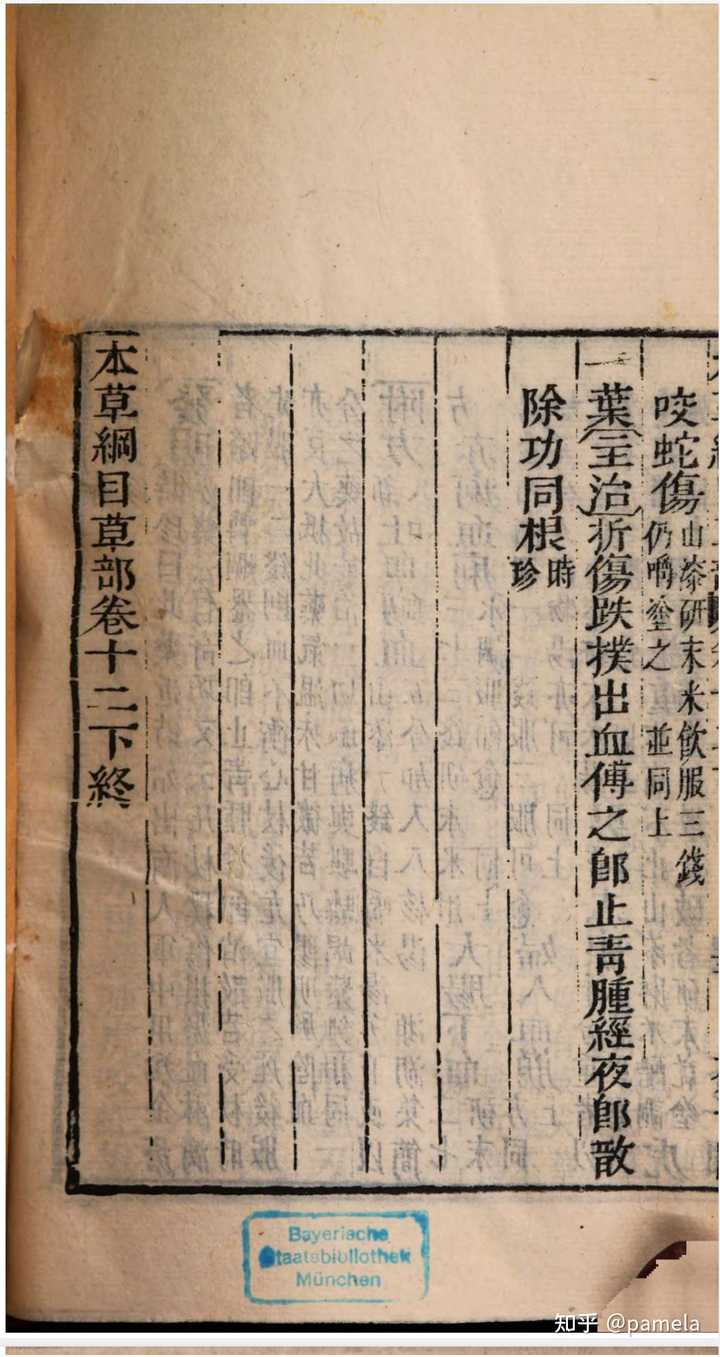 咬蛇傷山漆研末米飲服三錢仍嚼塗之 並同上
葉主治折傷跌撲出血傅之卽止青腫經夜卽散
除功同根時珍
本草綱目草部卷十二下終
Bayerische
Staatsbibliothek
München
知乎 @pamela